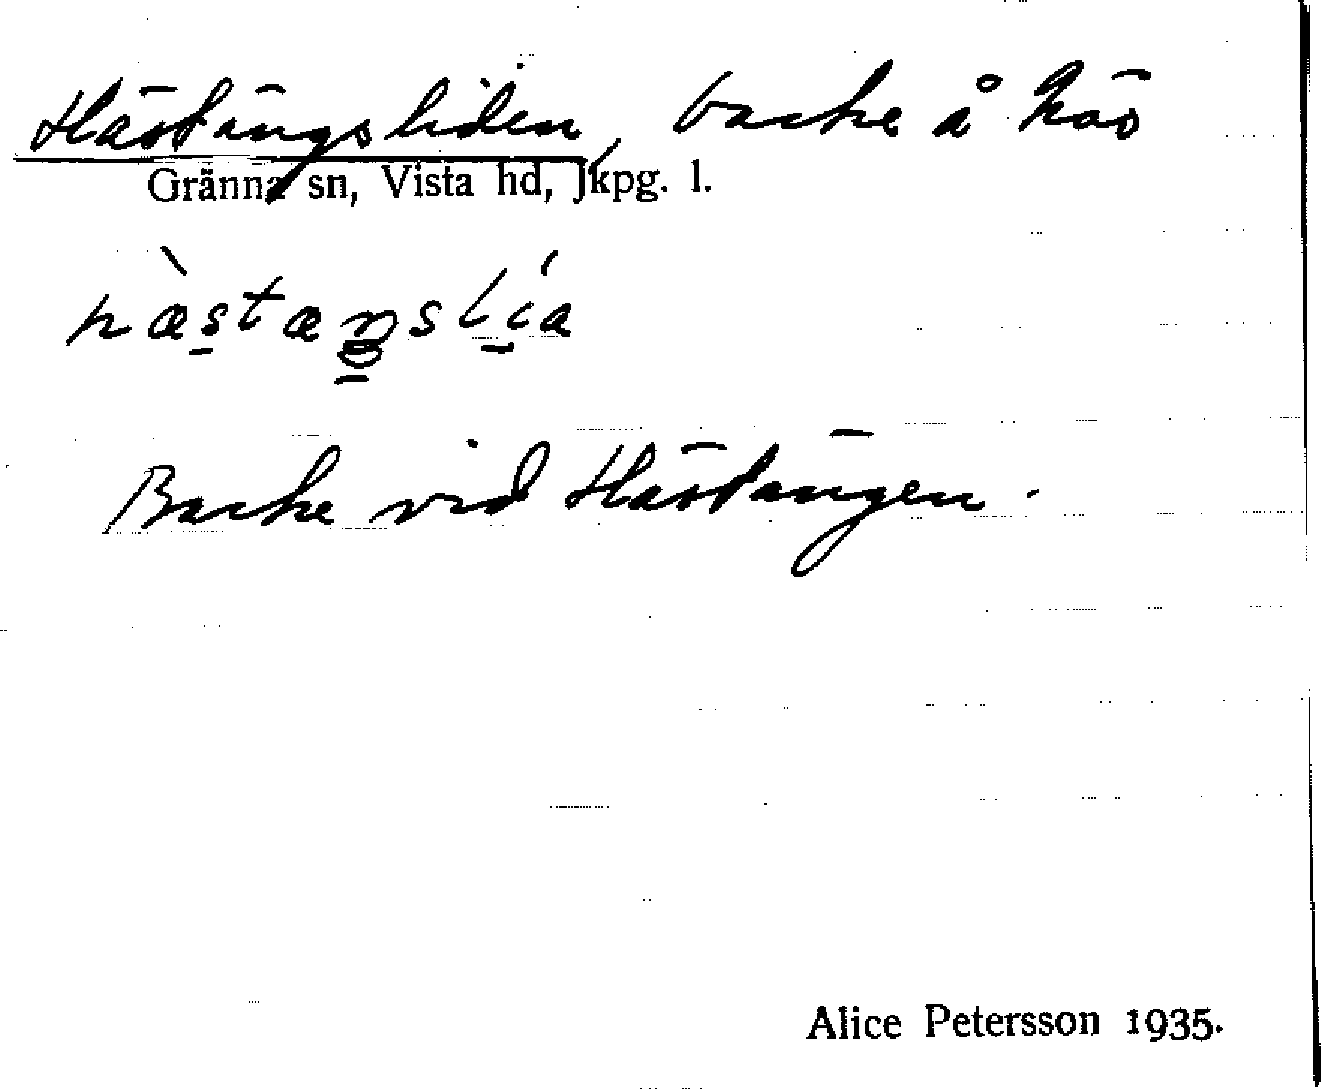 Hästängsliden, backe å Kås
Gränna sn, Vista hd, Jkpg. l.
hæ̀staŋslía
Backe vid Hästängen.
Alice Petersson 1935.